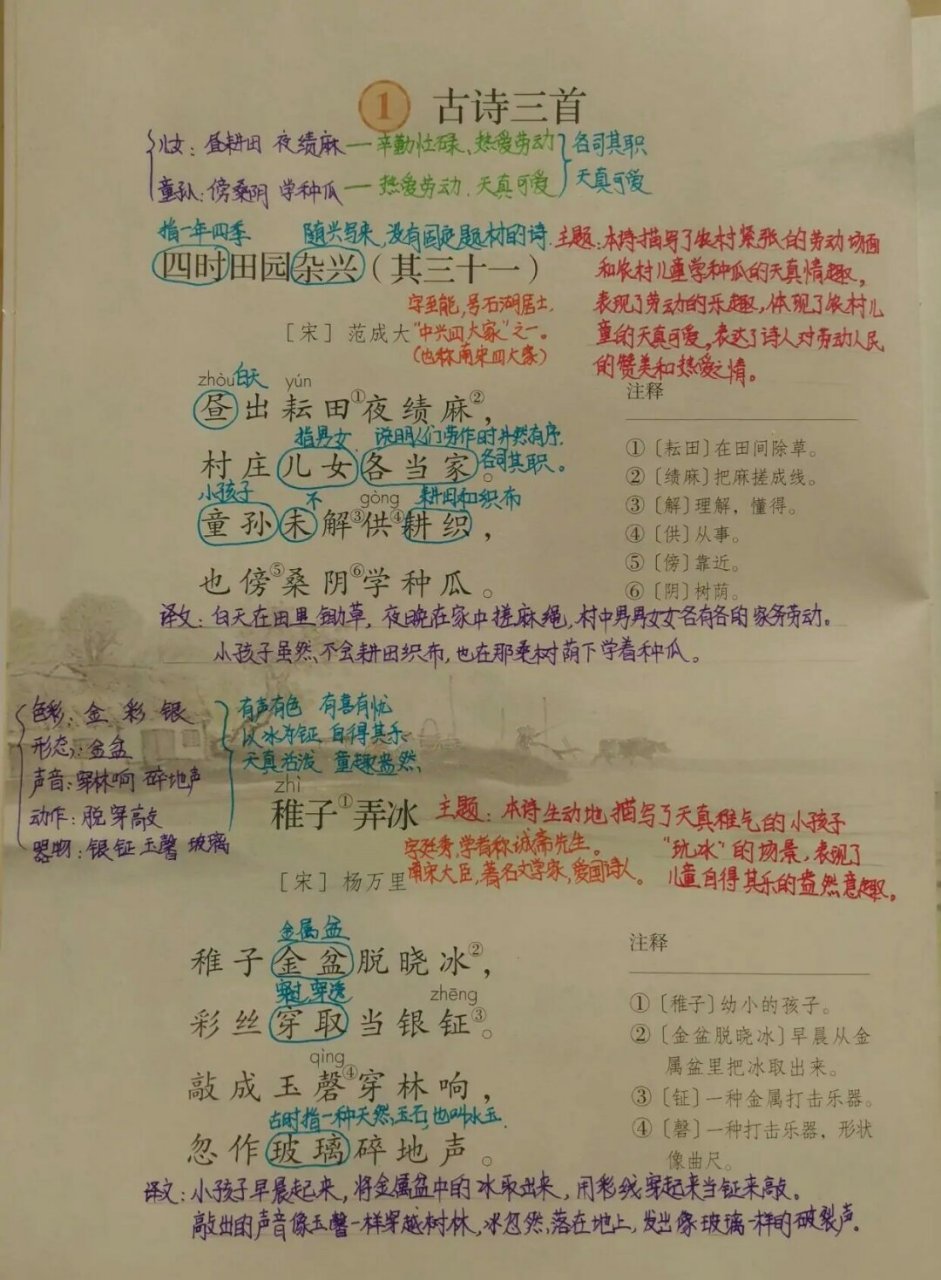 ① 古诗三首
儿女：昼耕田 夜绩麻—辛勤忙碌、热爱劳动 各司其职
童孙：傍桑阴 学种瓜—热爱劳动、天真可爱 天真可爱
指一年四季 随兴写来，没有固定题材的诗.
四时田园杂兴（其三十一）
主题：本诗描写了农村紧张的劳动场面
和农村儿童学种瓜的天真情趣，
表现了劳动的乐趣，体现了农村儿
童的天真可爱，表达了诗人对劳动人民
的赞美和热爱之情。
字至能，号石湖居士，
［宋］范成大 “中兴四大家”之一。
（也称南宋四大家）
zhòu 白天 yún
昼出耘田①夜绩麻②，
指男女 说明人们劳作时井然有序，
村庄儿女各当家。各司其职。
小孩子 不 gòng 耕田和织布
童孙未解③供④耕织，
也傍⑤桑阴⑥学种瓜。
注释
①〔耘田〕在田间除草。
②〔绩麻〕把麻搓成线。
③〔解〕理解，懂得。
④〔供〕从事。
⑤〔傍〕靠近。
⑥〔阴〕树荫。
译文：白天在田里锄草，夜晚在家中搓麻绳，村中男男女女各有各的家务劳动。
小孩子虽然不会耕田织布，也在那桑树荫下学着种瓜。
色彩：金 彩 银
形态：金盆
声音：穿林响 碎地声
动作：脱 穿 敲
器物：银钲 玉磬 玻璃
有声有色 有喜有忧
以冰为钲 自得其乐
天真活泼 童趣盎然
zhì
稚子①弄冰
主题：本诗生动地描写了天真稚气的小孩子
“玩冰”的场景，表现了
儿童自得其乐的盎然意趣。
字廷秀，学者称诚斋先生。
［宋］杨万里 南宋大臣，著名文学家，爱国诗人。
金属盆
稚子金盆脱晓冰②，
穿过，穿透 zhēng
彩丝穿取当银钲③。
qìng
敲成玉磬④穿林响，
古时指一种天然玉石，也叫水玉.
忽作玻璃碎地声。
注释
①〔稚子〕幼小的孩子。
②〔金盆脱晓冰〕早晨从金
属盆里把冰取出来。
③〔钲〕一种金属打击乐器。
④〔磬〕一种打击乐器，形状
像曲尺。
译文：小孩子早晨起来，将金属盆中的冰取出来，用彩线穿起来当钲来敲。
敲出的声音像玉磬一样穿越树林，冰忽然落在地上，发出像玻璃一样的破裂声。